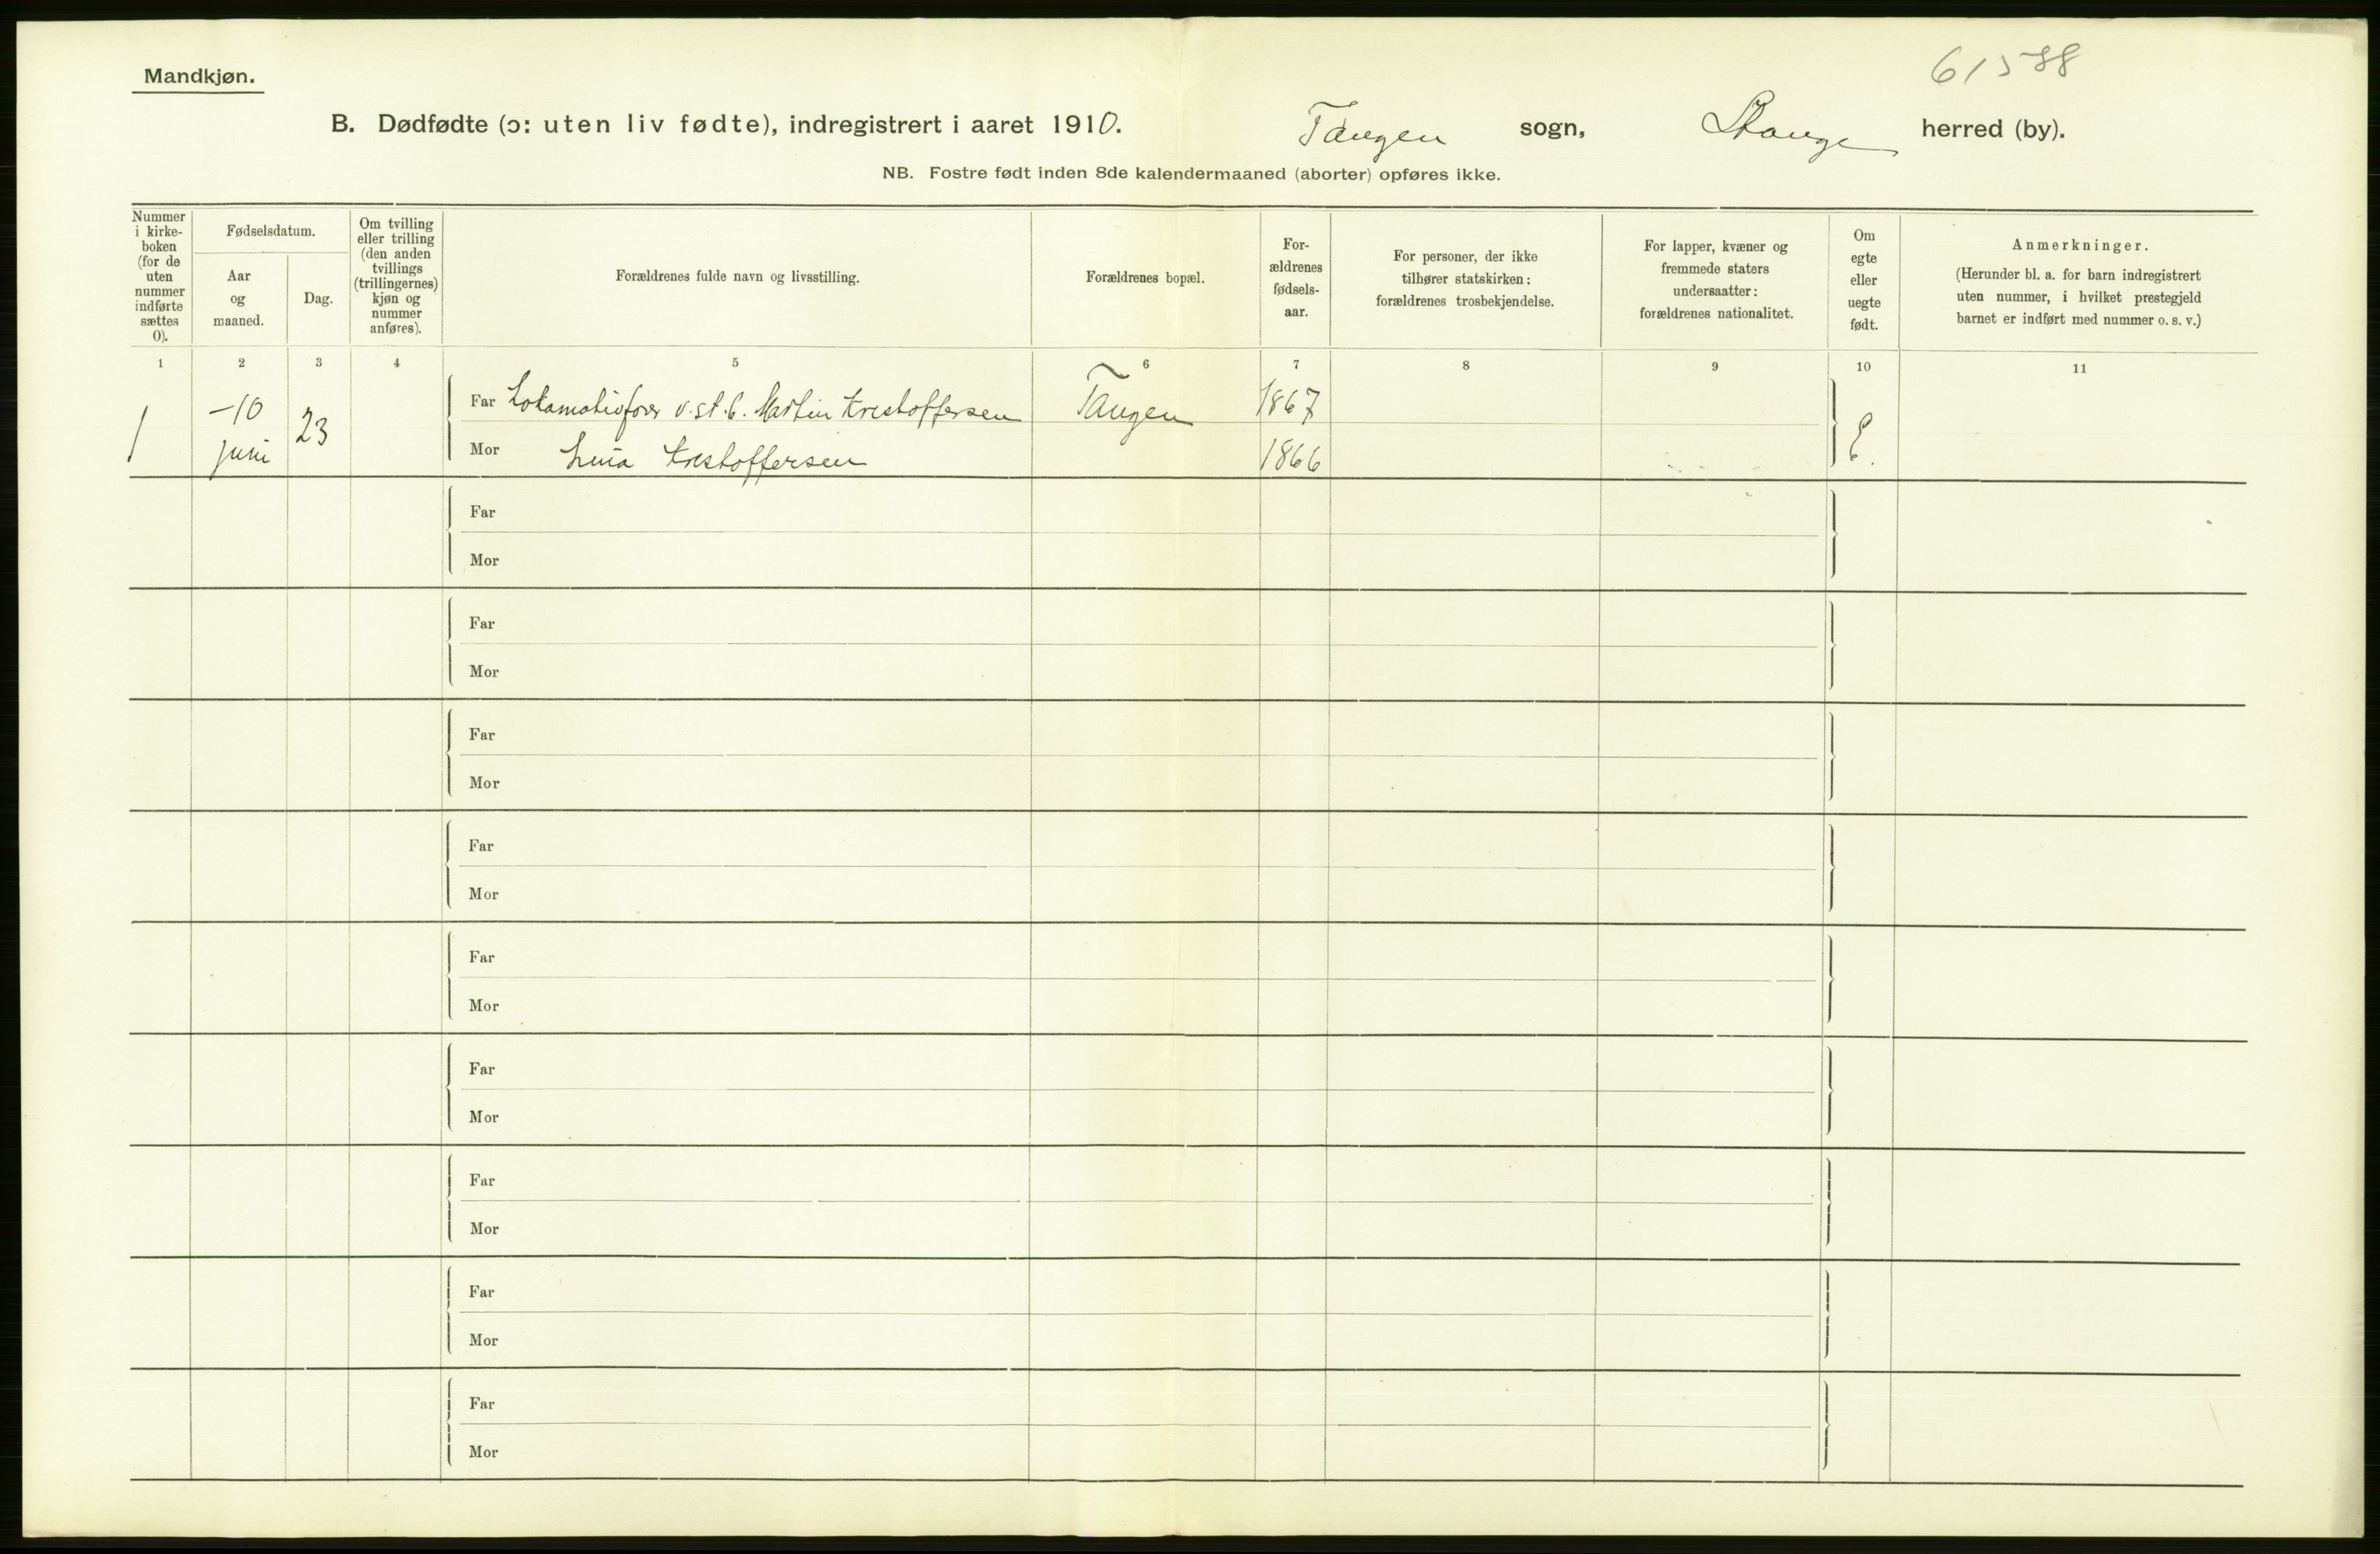 61588
Mandkjøn.
B. Dødfødte (ɔ: uten liv fødte), indregistrert i aaret 1910. Tangen sogn, Stange herred (by).
NB. Fostre født inden 8de kalendermaaned (aborter) opføres ikke.
Nummer i kirke-boken (for de uten nummer indførte sættes 0).
Fødselsdatum.
Aar og maaned.
Dag.
Om tvilling eller trilling (den anden tvillings (trillingernes) kjøn og nummer anføres).
Forældrenes fulde navn og livsstilling.
Forældrenes bopæl.
For-ældrenes fødsels-aar.
For personer, der ikke tilhører statskirken: forældrenes trosbekjendelse.
For lapper, kvæner og fremmede staters undersaatter: forældrenes nationalitet.
Om egte eller uegte født.
Anmerkninger.
(Herunder bl. a. for barn indregistrert uten nummer, i hvilket prestegjeld barnet er indført med nummer o. s. v.)
1 2 3 4 5 6 7 8 9 10 11
1 -10 juni 23
Far Lokomotivfører v. st. b. Martin Kristoffersen Tangen 1867
Mor Lina Kristoffersen 1866 E.
Far
Mor
Far
Mor
Far
Mor
Far
Mor
Far
Mor
Far
Mor
Far
Mor
Far
Mor
Far
Mor